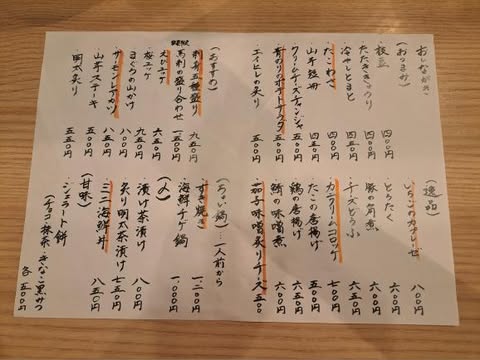 おしながき
(おつまみ)
・枝豆 四〇〇円
・冷やしトマト 四〇〇円
・たたききゅうり 四五〇円
・たこわさ 四五〇円
・山芋短冊 四五〇円
・クリームチーズチャンジャ 五〇〇円
・青のりのポテトフライ 五〇〇円
・エイヒレの炙り 五五〇円
(おすすめ)
・刺身五種盛り 九五〇円
・馬刺の盛り合わせ 一、五〇〇円
・えびユッケ 六五〇円
・桜ユッケ 九五〇円
・まぐろの山かけ 八〇〇円
・サーモンレアカツ 八五〇円
・山芋ステーキ 五五〇円
・明太炙り 五五〇円
(逸品)
・いちごのカプレーゼ 八〇〇円
・とろたく 六〇〇円
・豚の角煮 六五〇円
・チーズどうふ 五五〇円
・カニクリームコロッケ 七〇〇円
・たこの唐揚げ 六〇〇円
・鶏の唐揚げ 六〇〇円
・鯖の味噌煮 六五〇円
・茄子味噌炙りチーズ 五五〇
(ちょい鍋)…一人前から
・すき焼き 一、二〇〇円
・海鮮チゲ鍋 一、〇〇〇円
(〆)
・漬け茶漬け 八〇〇円
・炙り明太茶漬け 七五〇円
・ミニ海鮮丼 八五〇円
(甘味)
・ジェラート餅
(チョコ・抹茶・きなこ黒みつ) 各五〇〇円